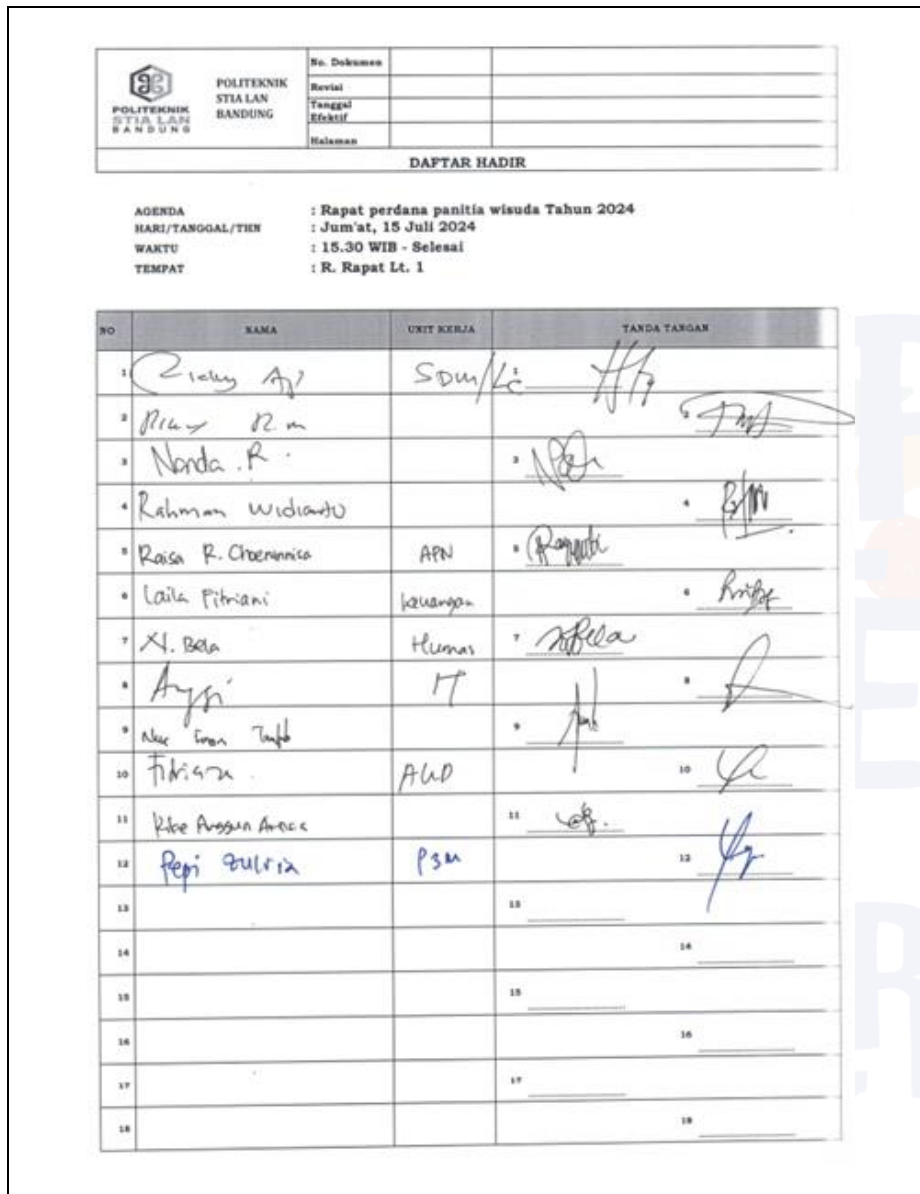 POLITEKNIK
STIA LAN
BANDUNG
POLITEKNIK
STIA LAN
BANDUNG
No. Dokumen
Revisi
Tanggal
Efektif
Halaman
DAFTAR HADIR
AGENDA : Rapat perdana panitia wisuda Tahun 2024
HARI/TANGGAL/THN : Jum'at, 15 Juli 2024
WAKTU : 15.30 WIB - Selesai
TEMPAT : R. Rapat Lt. 1
NO NAMA UNIT KERJA TANDA TANGAN
1 Ricky Aji SDM/ 1
2 2
3 Nanda . R . 3
4 Rahman Widianto 4
5 Raisa R. Choerunnisa APN 5
6 Laila Fitriani keuangan 6
7 N. Bela Humas 7
8 Anggi IT 8
9 Nur 9
10 Fitriana 10
11 Anggun 11
12 Pepi Zulvia P3M 12
13 13
14 14
15 15
16 16
17 17
18 18